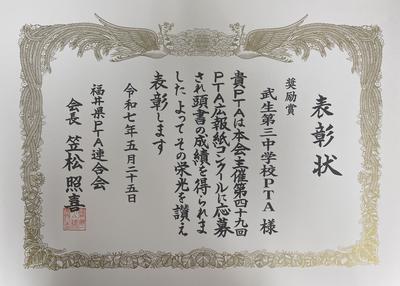 表彰状
奨励賞
武生第三中学校PTA 様
貴PTAは本会主催第四十九回
PTA広報紙コンクールに応募
され頭書の成績を得られま
した よってその栄光を讃え
表彰します
令和七年五月二十五日
福井県PTA連合会
会長 笠松 照喜